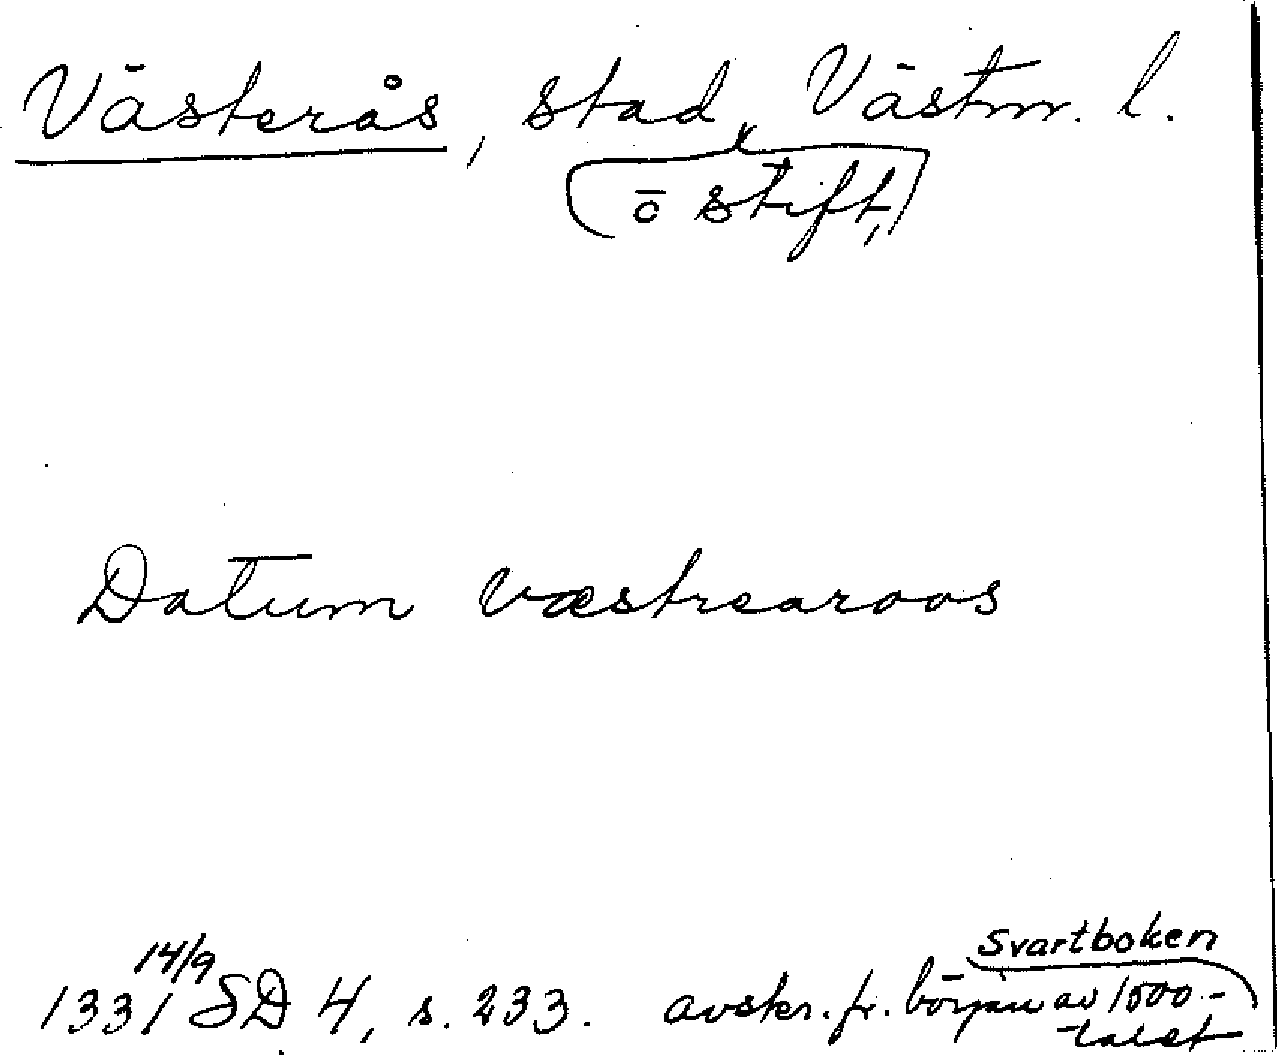 Västerås, stad, Västm. l.
o stift,
Datum væstrearoos
Svartboken
14/9
1331 SD 4, s. 233. avskr. fr. början av 1500-
talet